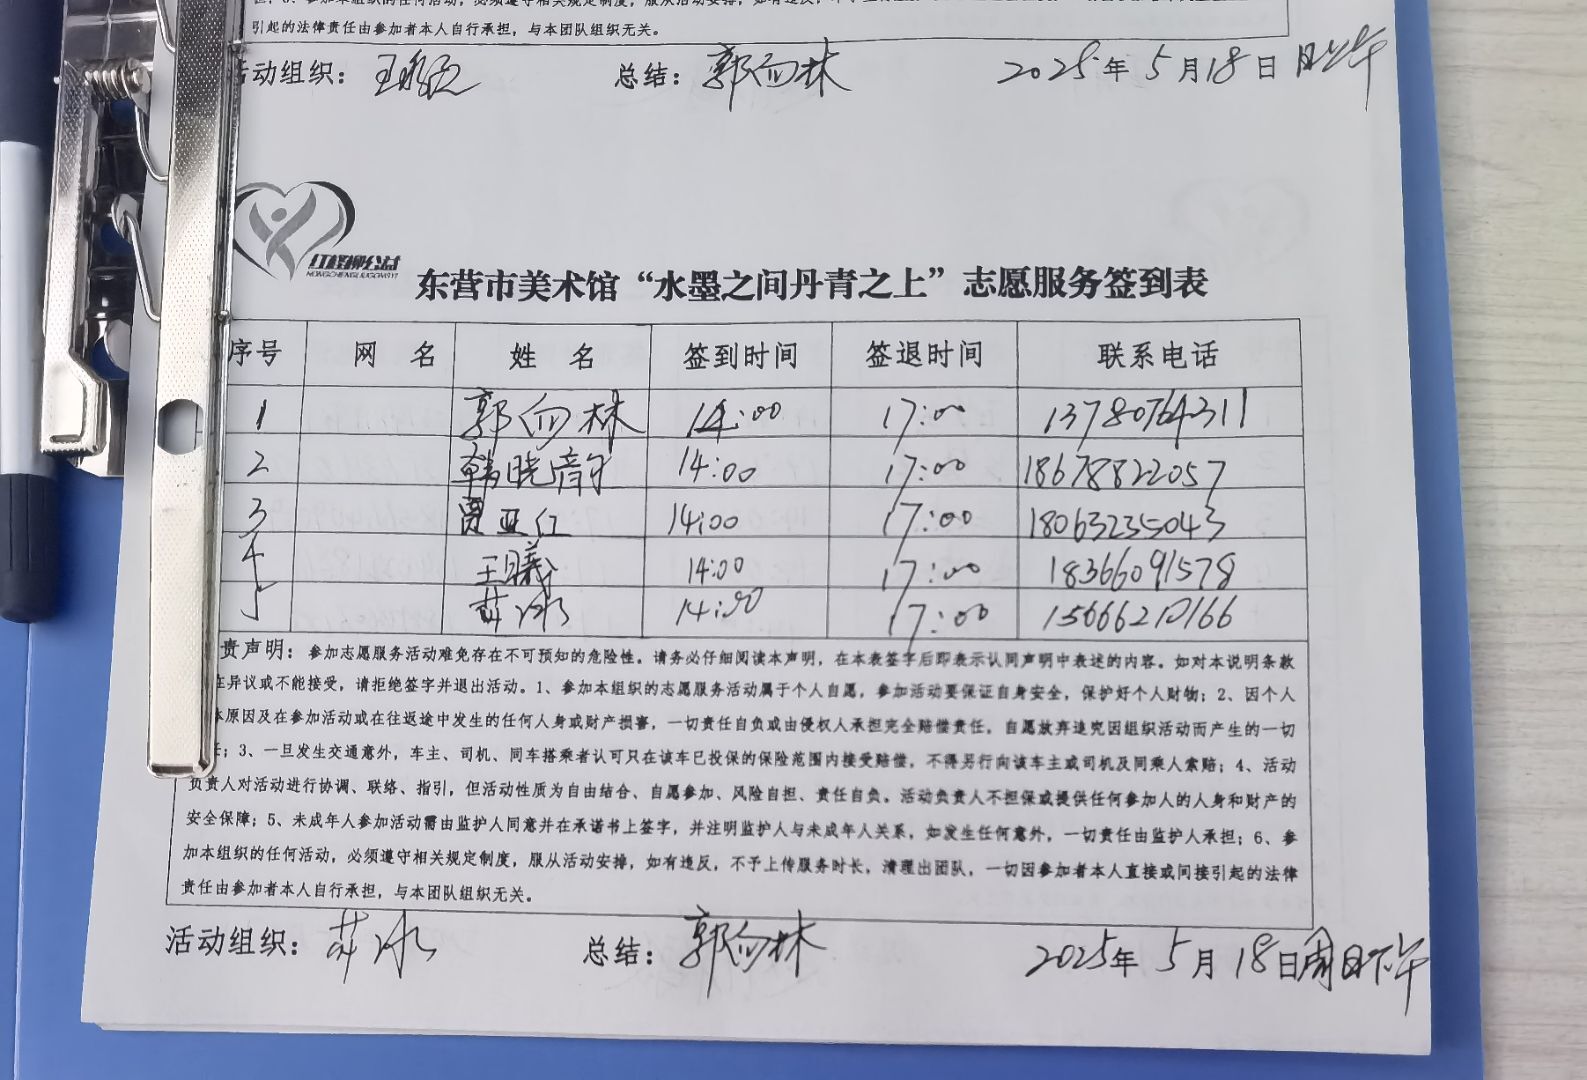 引起的法律责任由参加者本人自行承担，与本团队组织无关。
活动组织： 总结：郭向林 2025年5月18日 上午
红柽柳公益
HONGCHENGLIUGONGYI
东营市美术馆“水墨之间丹青之上”志愿服务签到表
序号 网 名 姓 名 签到时间 签退时间 联系电话
1 郭向林 14:00 17:00 13780764311
2 韩晓 14:00 17:00 18678822057
3 贾亚红 14:00 17:00 18063235043
4 王曦 14:00 17:00 18366091578
5 苏冰 14:00 17:00 15666210166
责声明：参加志愿服务活动难免存在不可预知的危险性。请务必仔细阅读本声明，在本表签字后即表示认同声明中表述的内容。如对本说明条款
在异议或不能接受，请拒绝签字并退出活动。1、参加本组织的志愿服务活动属于个人自愿，参加活动要保证自身安全，保护好个人财物；2、因个人
本原因及在参加活动或在往返途中发生的任何人身或财产损害，一切责任自负或由侵权人承担完全赔偿责任，自愿放弃追究因组织活动而产生的一切
任；3、一旦发生交通意外，车主、司机、同车搭乘者认可只在该车已投保的保险范围内接受赔偿，不得另行向该车主或司机及同乘人索赔；4、活动
负责人对活动进行协调、联络、指引，但活动性质为自由结合、自愿参加、风险自担、责任自负。活动负责人不担保或提供任何参加人的人身和财产的
安全保障；5、未成年人参加活动需由监护人同意并在承诺书上签字，并注明监护人与未成年人关系，如发生任何意外，一切责任由监护人承担；6、参
加本组织的任何活动，必须遵守相关规定制度，服从活动安排，如有违反，不予上传服务时长，清理出团队，一切因参加者本人直接或间接引起的法律
责任由参加者本人自行承担，与本团队组织无关。
活动组织：苏冰 总结：郭向林 2025年5月18日周日下午